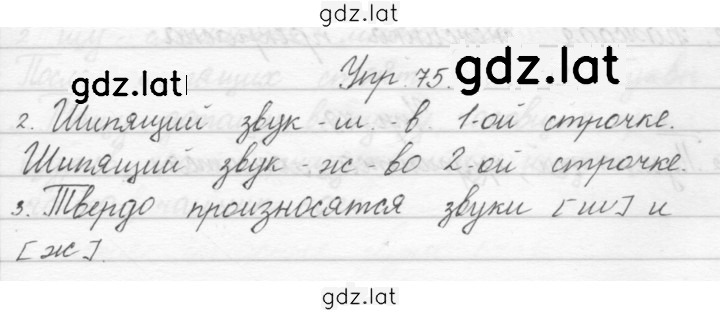 gdz.lat
gdz.lat
Упр. 75.
gdz.lat
2. Шипящий звук - ш - в 1-ой строчке.
Шипящий звук - ж - во 2-ой строчке.
3. Твердо произносятся звуки [ш] и
[ж].
gdz.lat